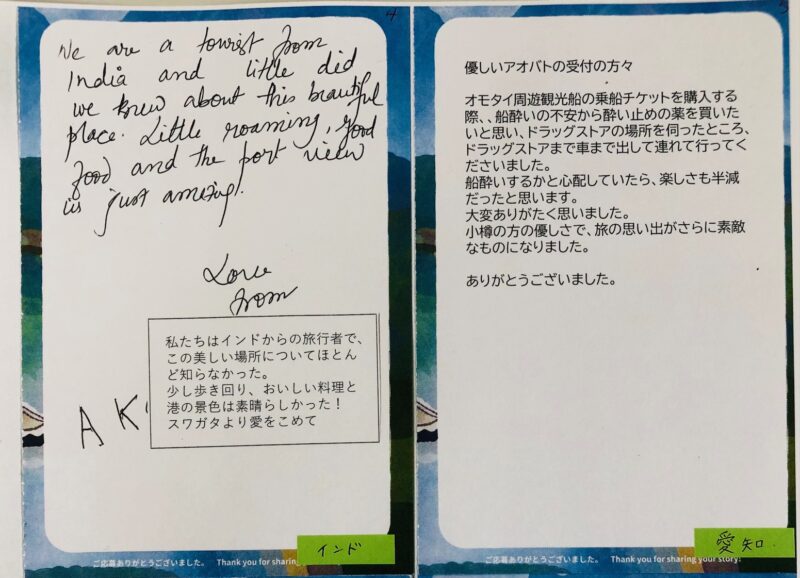 4
We are a tourist from
India and little did
we knew about this beautiful
place. Little roaming, good
food and the port view
is just amazing!
Love
from
AK
私たちはインドからの旅行者で、
この美しい場所についてほとん
ど知らなかった。
少し歩き回り、おいしい料理と
港の景色は素晴らしかった！
スワガタより愛をこめて
ご応募ありがとうございました。 Thank you for sharing
インド
優しいアオバトの受付の方々
オモタイ周遊観光船の乗船チケットを購入する
際、、船酔いの不安から酔い止めの薬を買いた
いと思い、ドラッグストアの場所を伺ったところ、
ドラッグストアまで車まで出して連れて行ってく
ださいました。
船酔いするかと心配していたら、楽しさも半減
だったと思います。
大変ありがたく思いました。
小樽の方の優しさで、旅の思い出がさらに素敵
なものになりました。
ありがとうございました。
愛知
ご応募ありがとうございました。 Thank you for sharing your story!